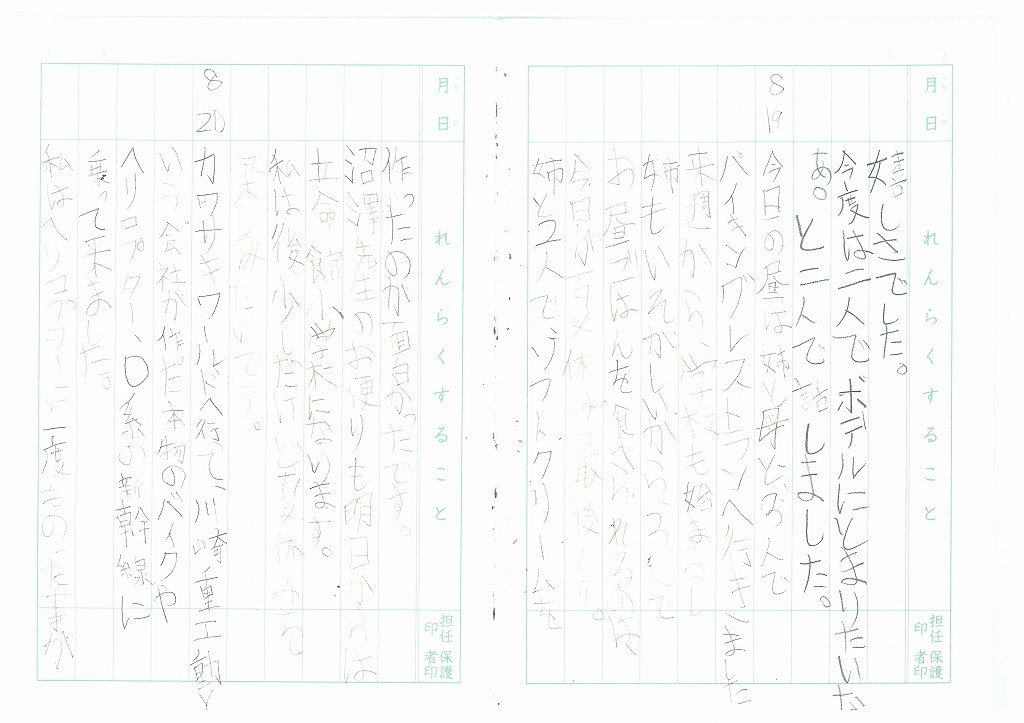 月日
れんらくすること
担任印 保護者印
嬉しさでした。
今度は二人でボデルにとまりたいな
あ。と二人で話しました。
8 19
今日の昼は姉と母と3人で
バイキングレストランへ行きました
来週から、学校も始まるし
姉もいそがしいから、3人で
お昼ごはんを食べられるのは
今日が 休 最後 す。
姉と2人でソフトクリームを
月日
れんらくすること
担任印 保護者印
作ったのが面白かったです。
沼澤先生のお便りも明日からは
立命館小学校になります。
私は後少しだけど夏休みの
みたいです。
8 20
カワサキワールドへ行て、川崎重工動
いう会社が作った本物のバイクや
ヘリコプター、0系の新幹線に
乗って来ました。
私はヘリコプターに一度ものた事が